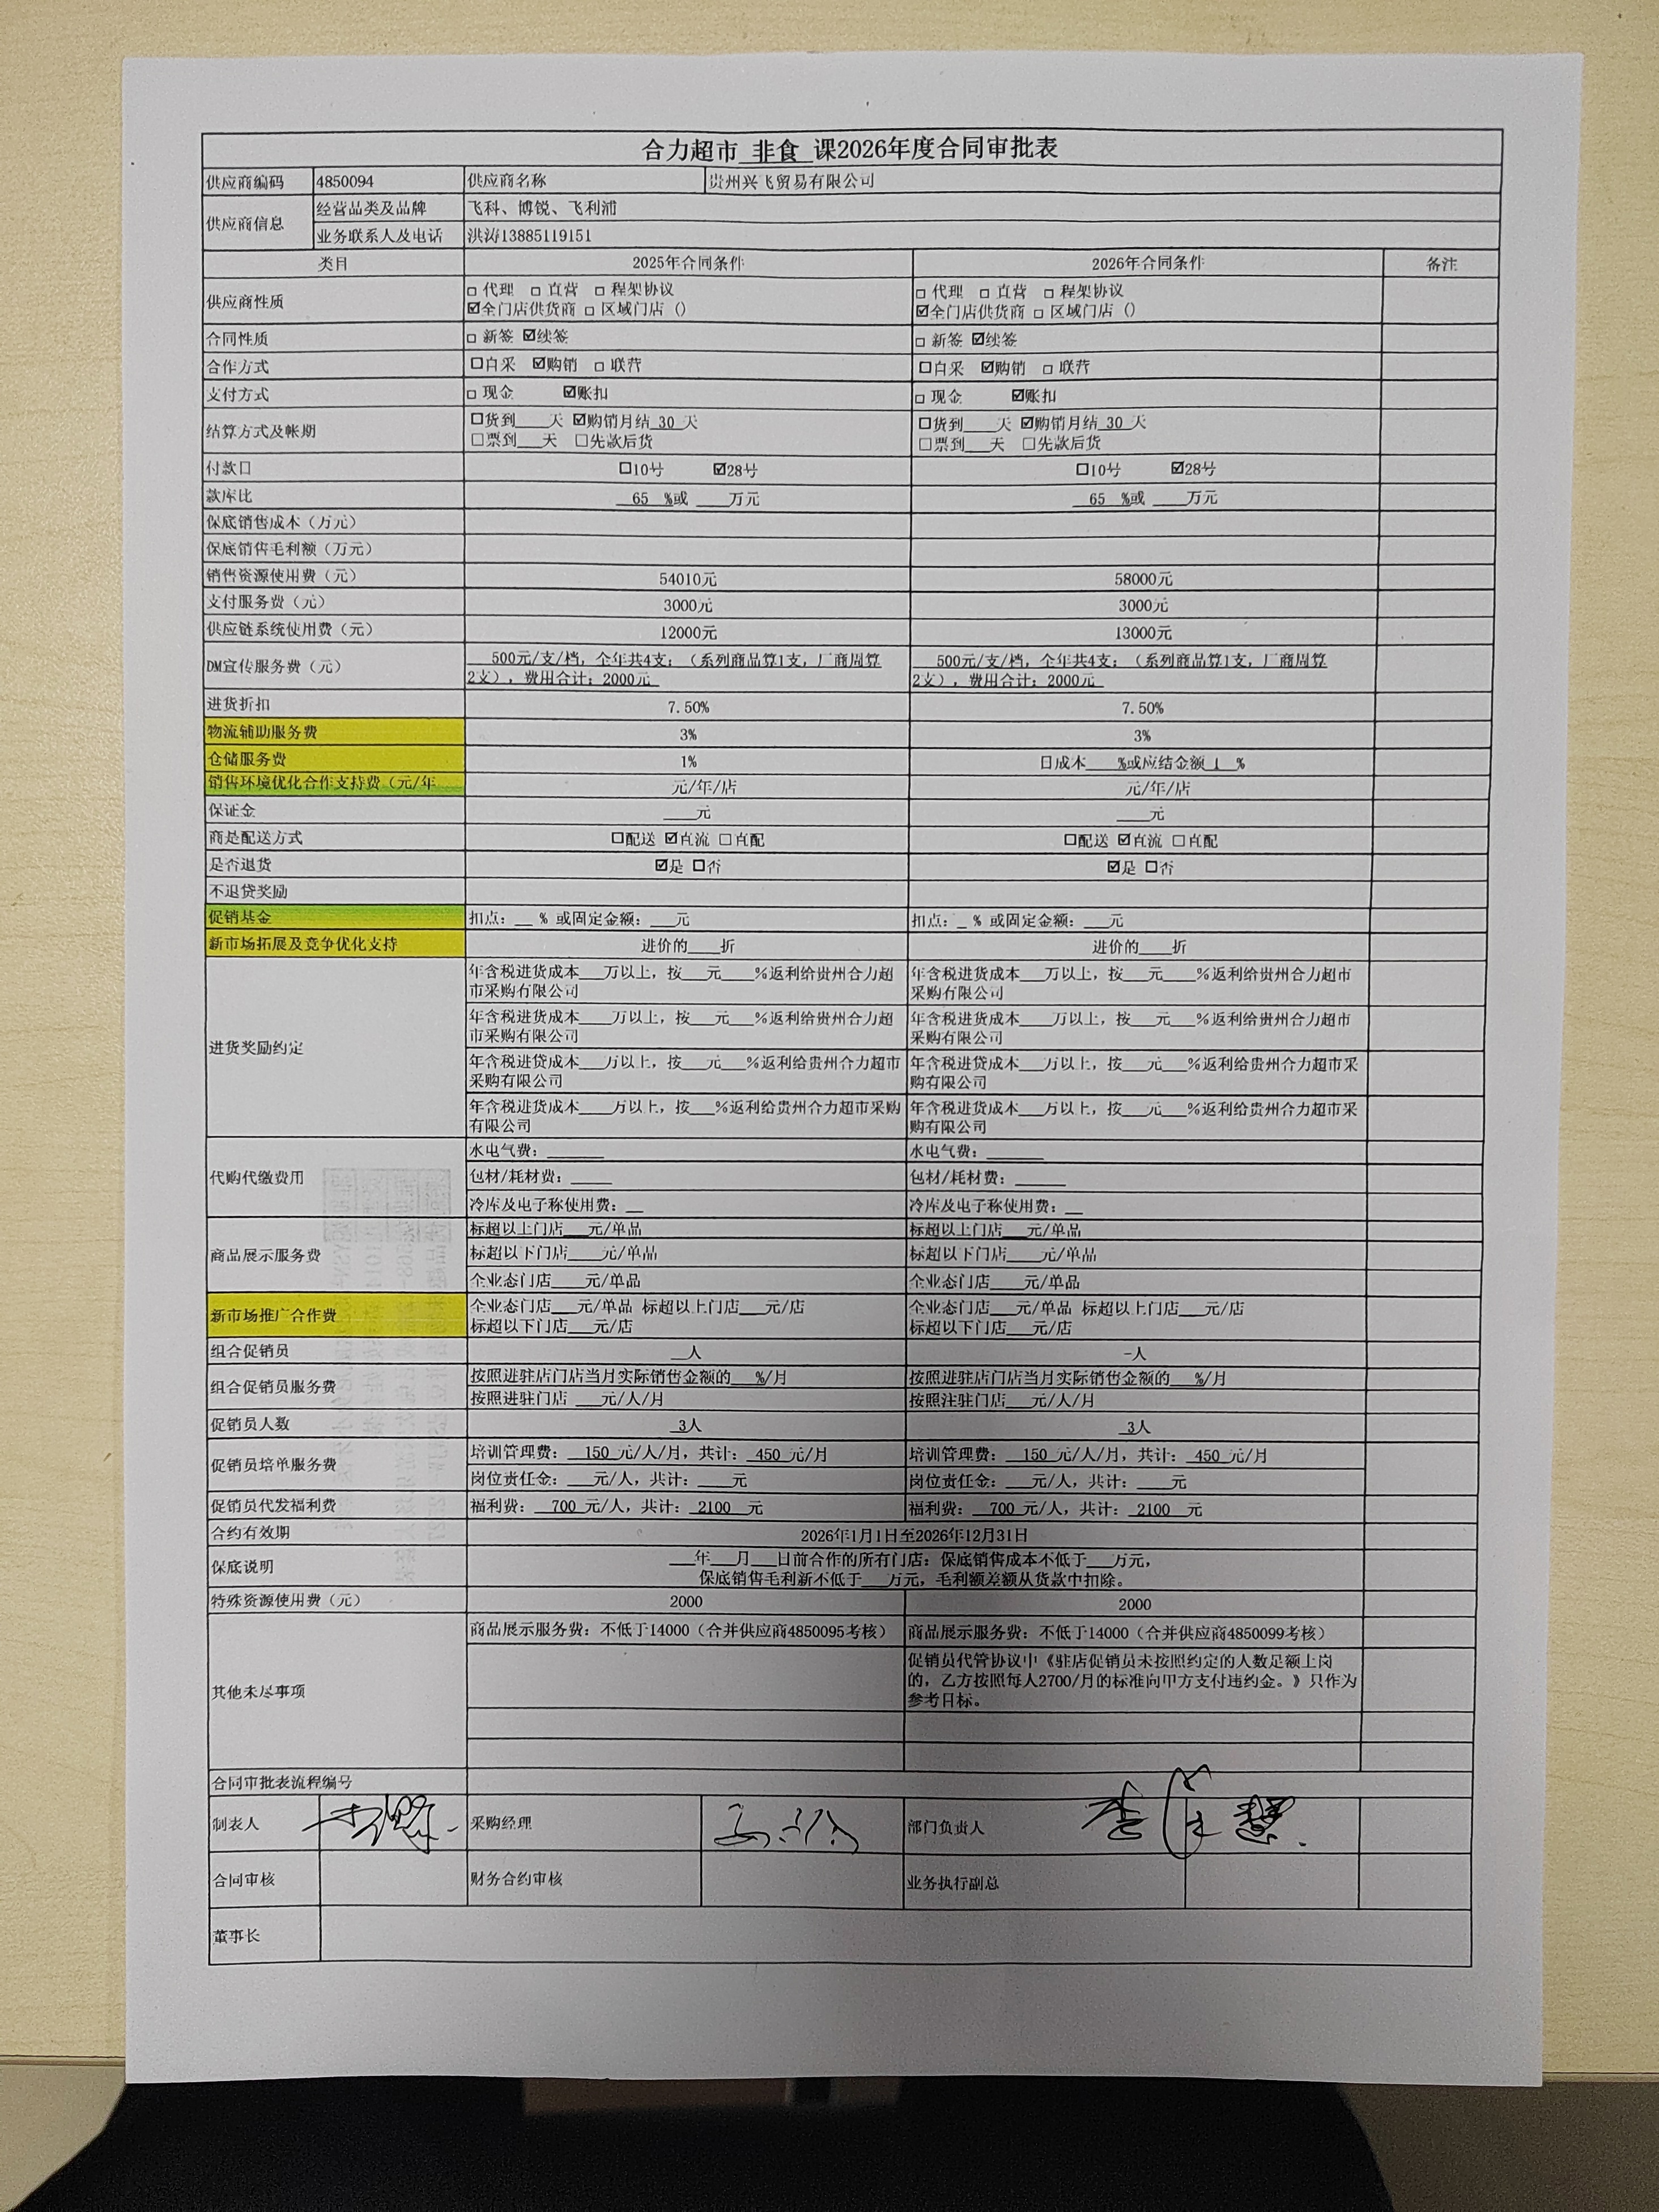 合力超市 非食 课2026年度合同审批表
供应商编码 4850094 供应商名称 贵州兴飞贸易有限公司
供应商信息 经营品类及品牌 飞科、博锐、飞利浦
业务联系人及电话 洪涛13885119151
类目 2025年合同条件 2026年合同条件 备注
供应商性质 □ 代理 □ 直营 □ 程架协议 □ 代理 □ 直营 □ 程架协议
☑全门店供货商 □ 区域门店（） ☑全门店供货商 □ 区域门店（）
合同性质 □ 新签 ☑续签 □ 新签 ☑续签
合作方式 □自采 ☑购销 □ 联营 □自采 ☑购销 □ 联营
支付方式 □ 现金 ☑账扣 □ 现金 ☑账扣
结算方式及帐期 □货到____天 ☑购销月结 30 天 □货到____天 ☑购销月结 30 天
□票到___天 □先款后货 □票到___天 □先款后货
付款日 □10号 ☑28号 □10号 ☑28号
款库比 65 %或 ____万元 65 %或 ____万元
保底销售成本（万元）
保底销售毛利额（万元）
销售资源使用费（元） 54010元 58000元
支付服务费（元） 3000元 3000元
供应链系统使用费（元） 12000元 13000元
DM宣传服务费（元） 500元/支/档，全年共4支；（系列商品算1支，厂商周算 500元/支/档，全年共4支；（系列商品算1支，厂商周算
2支），费用合计：2000元 2支），费用合计：2000元
进货折扣 7.50% 7.50%
物流辅助服务费 3% 3%
仓储服务费 1% 日成本____%或应结金额 1 %
销售环境优化合作支持费（元/年 元/年/店 元/年/店
保证金 ____元 ____元
商是配送方式 □配送 ☑直流 □直配 □配送 ☑直流 □直配
是否退货 ☑是 □否 ☑是 □否
不退货奖励
促销基金 扣点：__ % 或固定金额：___元 扣点：_ % 或固定金额：___元
新市场拓展及竞争优化支持 进价的____折 进价的____折
进货奖励约定 年含税进货成本___万以上，按___元____%返利给贵州合力超 年含税进货成本___万以上，按___元____%返利给贵州合力超市
市采购有限公司 采购有限公司
年含税进货成本____万以上，按___元___%返利给贵州合力超 年含税进货成本___万以上，按___元___%返利给贵州合力超市
市采购有限公司 采购有限公司
年含税进货成本___万以上，按___元___%返利给贵州合力超市 年含税进货成本___万以上，按___元___%返利给贵州合力超市采
采购有限公司 购有限公司
年含税进货成本____万以上，按___%返利给贵州合力超市采购 年含税进货成本___万以上，按___元___%返利给贵州合力超市采
有限公司 购有限公司
代购代缴费用 水电气费：______ 水电气费：______
包材/耗材费：____ 包材/耗材费：_____
冷库及电子称使用费：__ 冷库及电子称使用费：__
商品展示服务费 标超以上门店___元/单品 标超以上门店___元/单品
标超以下门店____元/单品 标超以下门店____元/单品
全业态门店____元/单品 全业态门店____元/单品
新市场推广合作费 全业态门店___元/单品 标超以上门店___元/店 全业态门店___元/单品 标超以上门店___元/店
标超以下门店___元/店 标超以下门店___元/店
组合促销员 __人 -人
组合促销员服务费 按照进驻店门店当月实际销售金额的___%/月 按照进驻店门店当月实际销售金额的___%/月
按照进驻门店 ___元/人/月 按照注驻门店___元/人/月
促销员人数 3人 3人
促销员培单服务费 培训管理费： 150 元/人/月，共计： 450 元/月 培训管理费： 150 元/人/月，共计： 450 元/月
岗位责任金：___元/人，共计：____元 岗位责任金：___元/人，共计：____元
促销员代发福利费 福利费： 700 元/人，共计： 2100 元 福利费： 700 元/人，共计： 2100 元
合约有效期 2026年1月1日至2026年12月31日
保底说明 ___年___月___日前合作的所有门店：保底销售成本不低于___万元，
保底销售毛利新不低于___万元，毛利额差额从货款中扣除。
特殊资源使用费（元） 2000 2000
其他未尽事项 商品展示服务费：不低于14000（合并供应商4850095考核） 商品展示服务费：不低于14000（合并供应商4850099考核）
促销员代管协议中《驻店促销员未按照约定的人数足额上岗
的，乙方按照每人2700/月的标准向甲方支付违约金。》只作为
参考目标。
合同审批表流程编号
制表人 采购经理 部门负责人
合同审核 财务合约审核 业务执行副总
董事长